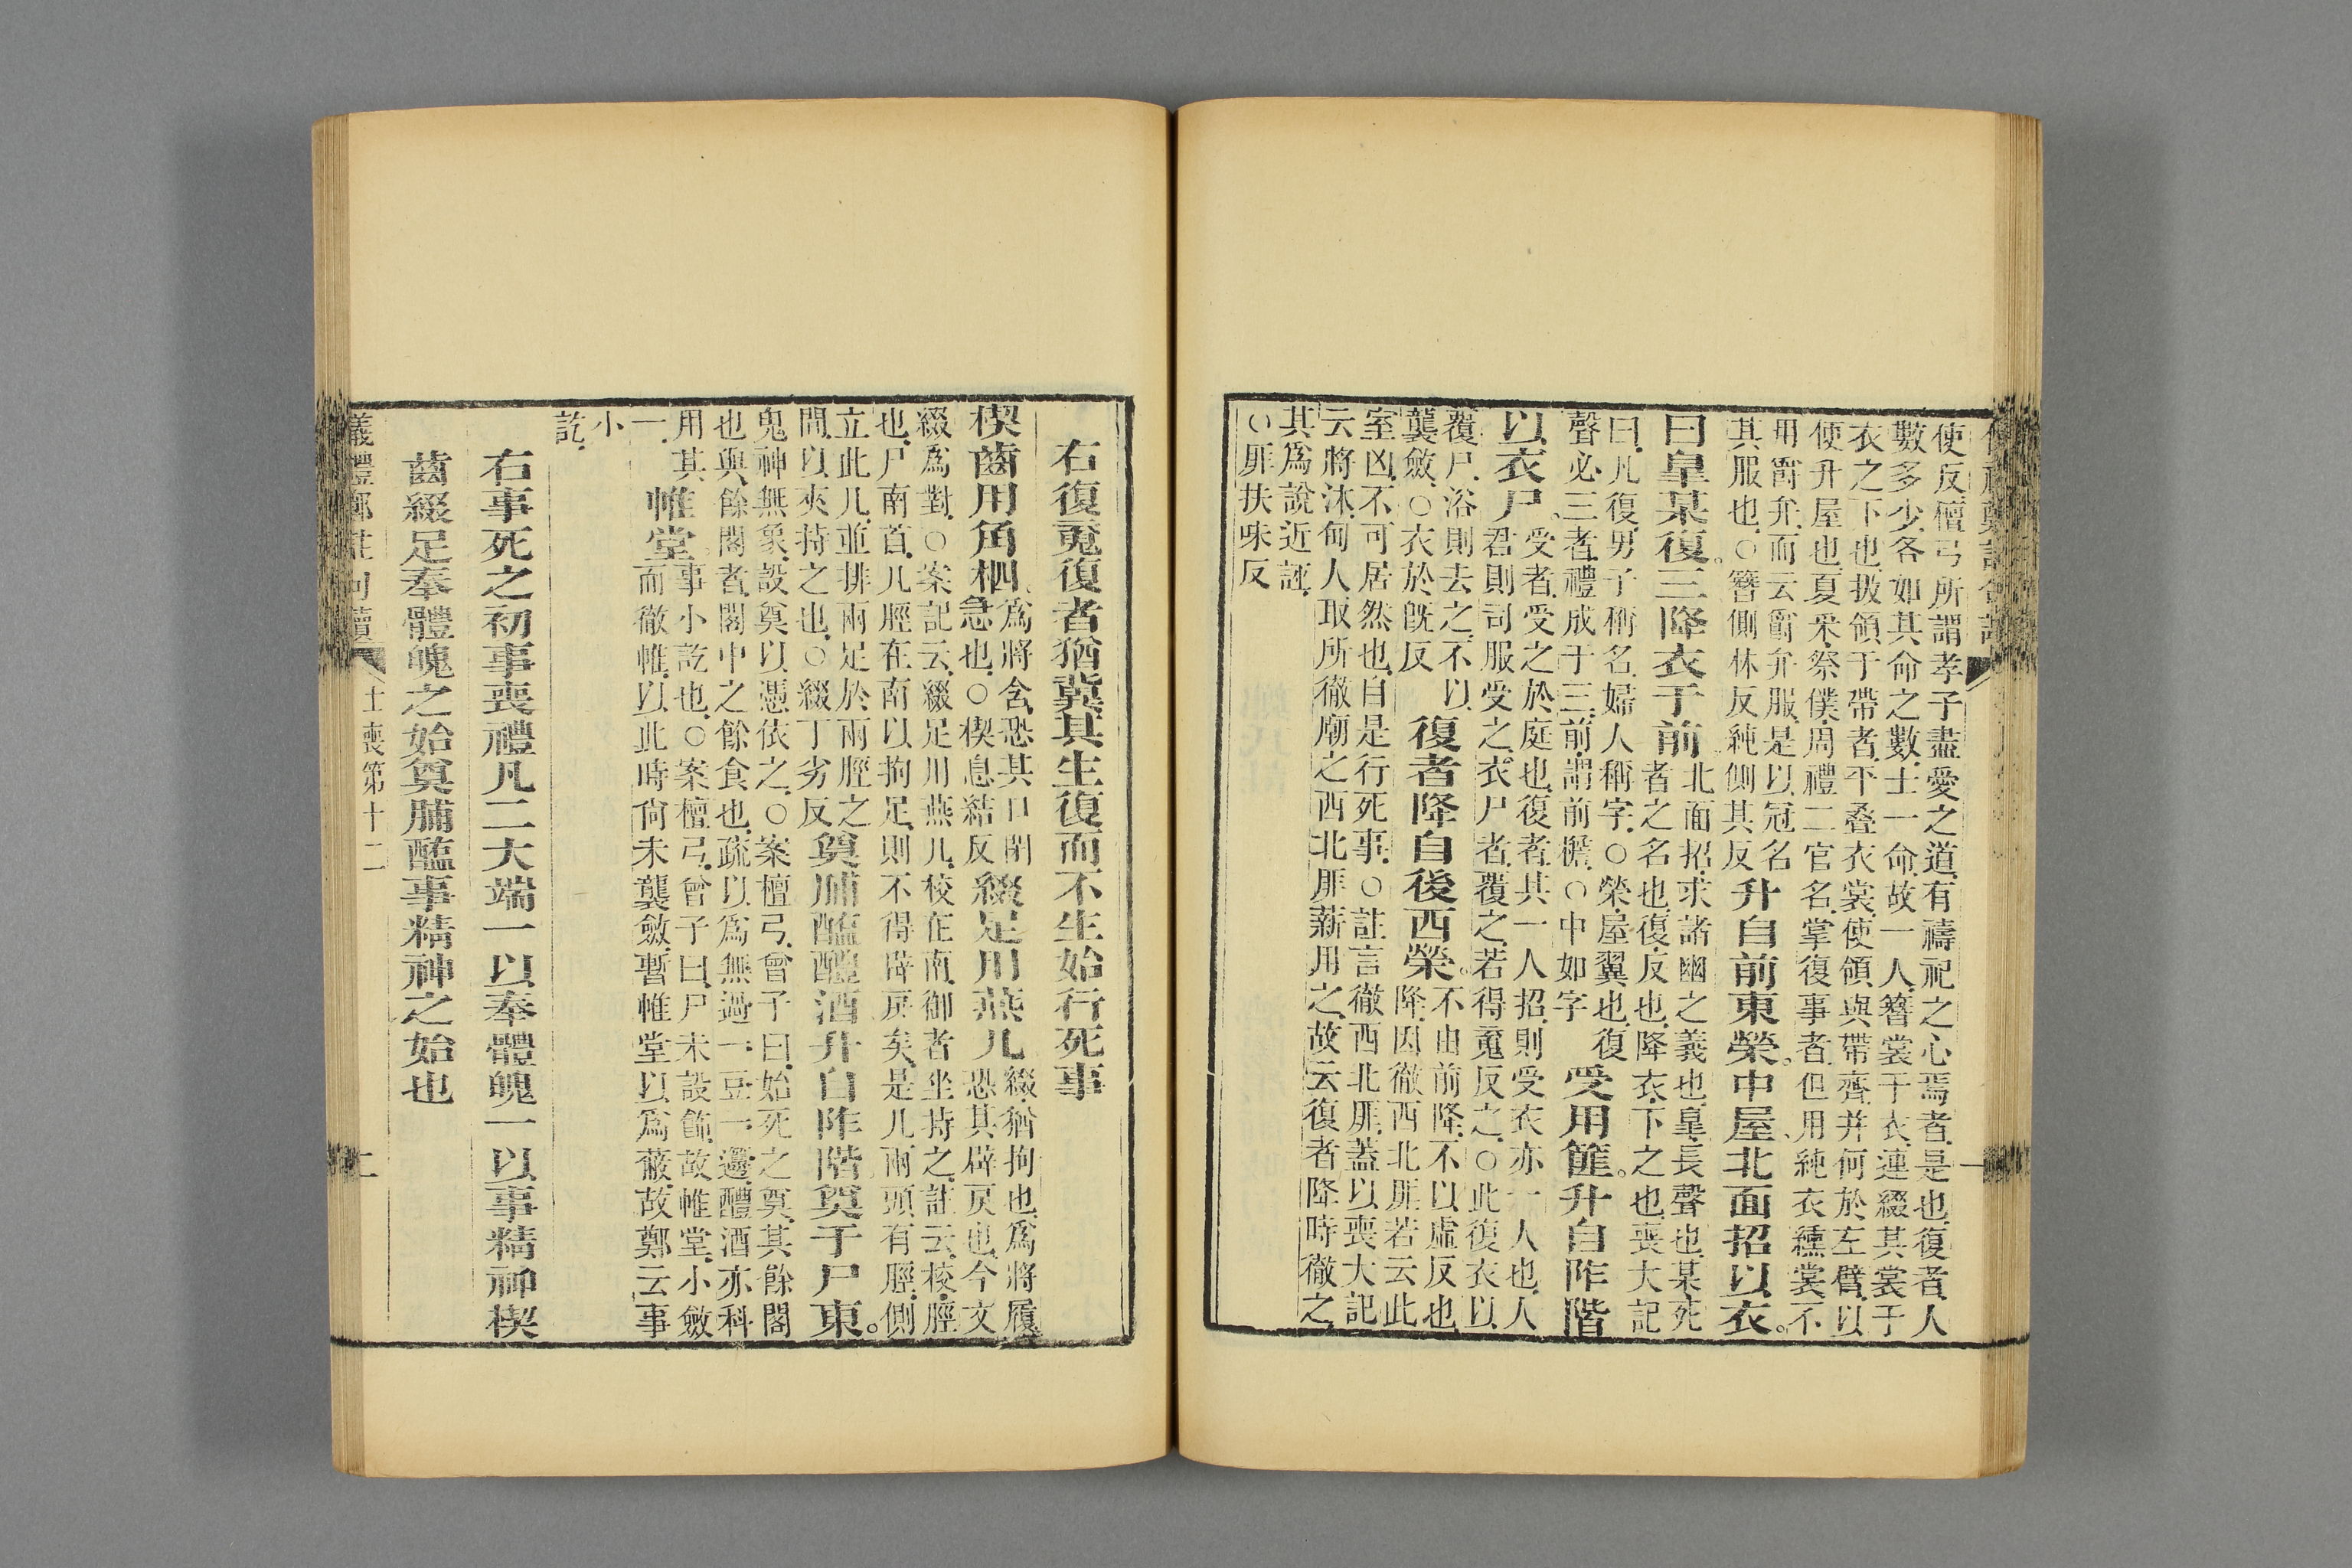 使反檀弓所謂孝子盡愛之道有禱祀之心焉者是也復者人
數多少各如其命之數士一命故一人簪裳于衣連綴其裳于
衣之下也扱領于帶者平疊衣裳使領與帶齊并何於左臂以
便升屋也夏采祭僕周禮二官名掌復事者但用純衣纁裳不
用爵弁而云爵弁服是以冠名
其服也○簪側林反純側其反
升自前東榮中屋北面招以衣。
曰皐某復。三降衣于前
北面招求諸幽之義也皐長聲也某死
者之名也復反也降衣下之也喪大記
曰凡復男子稱名婦人稱字○榮屋翼也復
聲必三者禮成于三前謂前檐○中如字
受用篚。升自阼階
以衣尸。
受者受之於庭也復者其一人招則受衣亦一人也人
君則司服受之衣尸者覆之若得䰟反之○此復衣以
覆尸浴則去之不以
襲斂○衣於旣反
復者降自後西榮。
不由前降不以虛反也
降因徹西北厞若云此
室凶不可居然也自是行死事○註言徹西北厞蓋以喪大記
云將沐甸人取所徹廟之西北厞薪用之故云復者降時徹之
其爲說近誣
○厞扶味反
右復䰟復者猶冀其生復而不生始行死事
楔齒用角柶。
爲將含恐其口閉
急也○楔息結反
綴足用燕几
綴猶拘也爲將屨
恐其辟戾也今文
綴爲對○案記云綴足用燕几校在南御者坐持之註云校脛
也尸南首几脛在南以拘足則不得辟戾矣是几兩頭有脛側
立此几並排兩足於兩脛之
間以夾持之也○綴丁劣反
奠脯醢醴酒升自阼階奠于尸東。
鬼神無象設奠以憑依之○案檀弓曾子曰始死之奠其餘閣
也與餘閣者閣中之餘食也疏以爲無過一豆一籩醴酒亦科
用其
一
帷堂。
事小訖也○案檀弓曾子曰尸未設飾故帷堂小斂
而徹帷以此時尙未襲斂暫帷堂以爲蔽故鄭云事
小
訖
右事死之初事喪禮凡二大端一以奉體魄一以事精神楔
齒綴足奉體魄之始奠脯醢事精神之始也
儀禮鄭註句讀
士喪第十二
二